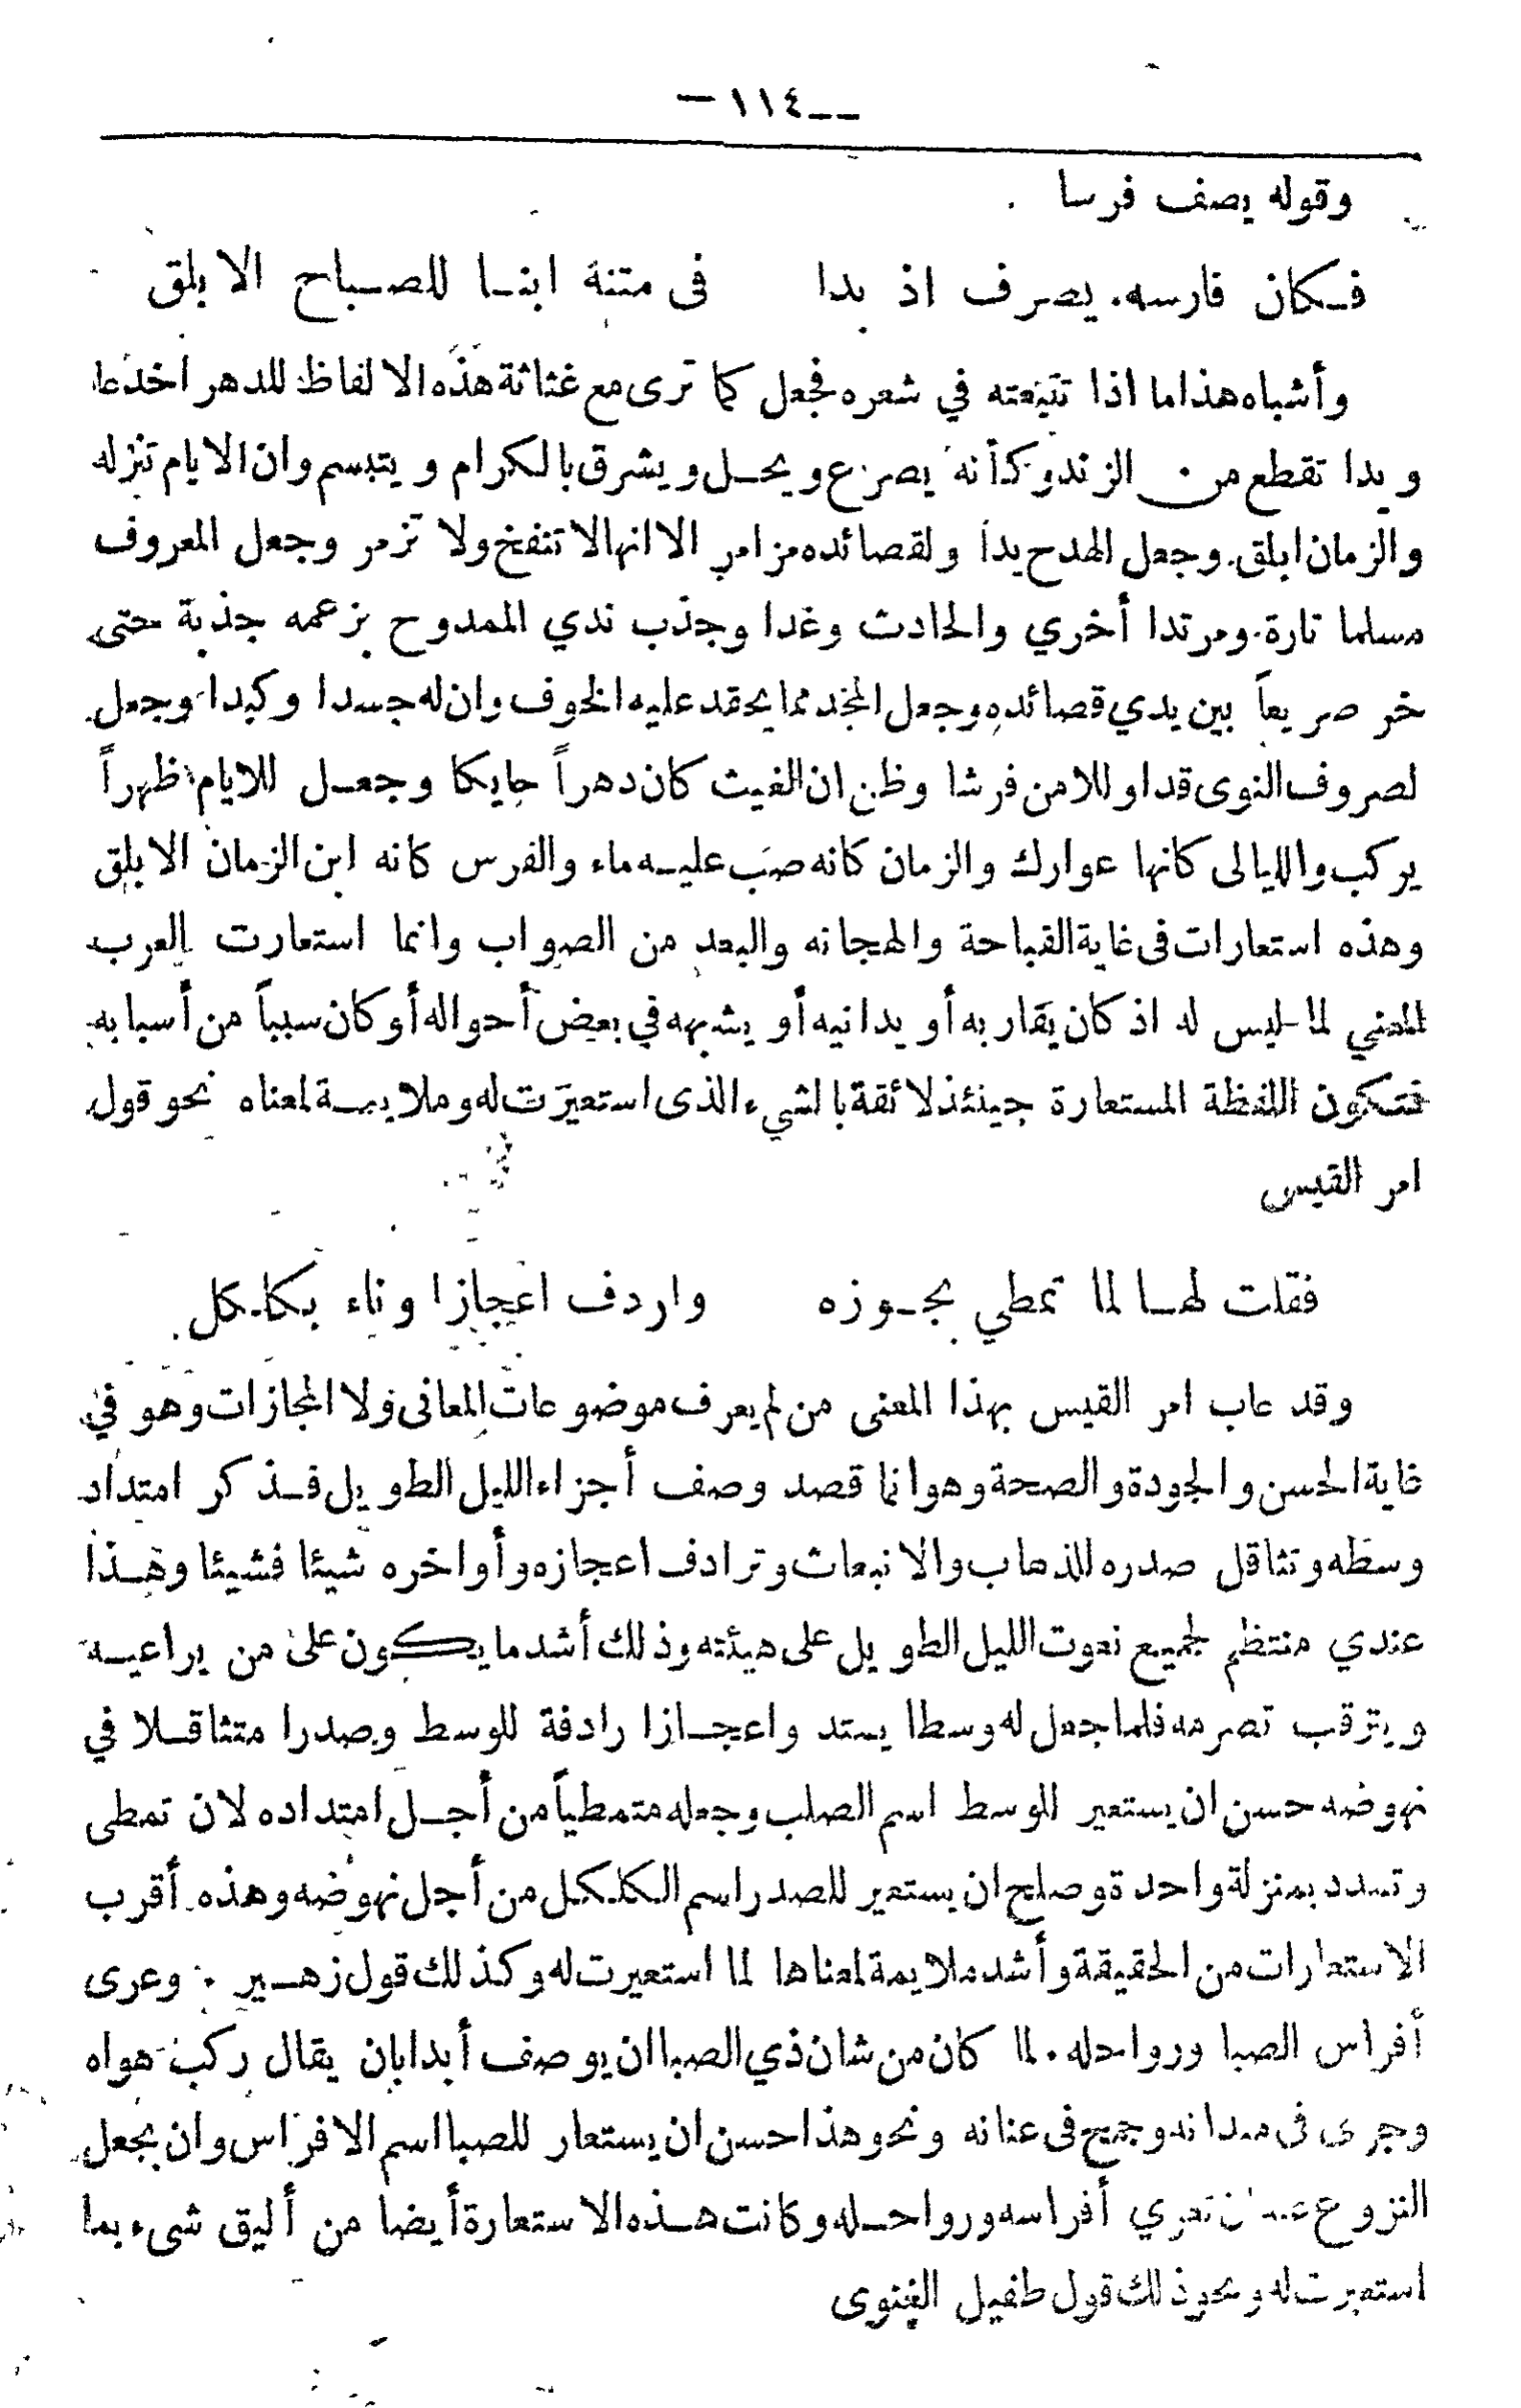 — ١١٤ —
وقوله يصف فرسا
فكان فارسه يصرف اذ بدا في متنة ابنا للصباح الابلق
وأشباه هذا مما اذا تتبعته في شعره فجعل كما ترى مع غثاثة هذه الالفاظ للدهر اخدعا
ويدا تقطع من الزند وكأنه يصرع ويحل ويشرق بالكرام ويتبسم وان الايام تنزله
والزمان ابلق وجعل للمدح يدا ولقصائده مزامر الا انها لا تنفخ ولا تزمر وجعل المعروف
مسلما تارة ومرتدا أخري والحادث وغدا وجذب ندي الممدوح بزعمه جذبة حتى
خر صريعاً بين يدي قصائده وجعل المجد مما يحقد عليه الخوف وان له جسدا وكبدا وجعل
لصروف النوى قدا وللامن فرشا وظن ان الغيث كان دهراً حايكا وجعل للايام ظهراً
يركب والليالى كانها عوارك والزمان كانه صب عليه ماء والفرس كانه ابن الزمان الابلق
وهذه استعارات فى غاية القباحة والهجانه والبعد من الصواب وانما استعارت العرب
المعني لما ليس له اذ كان يقاربه أو يدانيه أو يشبهه في بعض أحواله أو كان سبباً من أسبابه
فتكون اللفظة المستعارة حينئذ لائقة بالشيء الذى استعيرت له وملايمة لمعناه نحو قول
امر القيس
فقلت لها لما تمطي بجوزه واردف اعجازا وناء بكلكل
وقد عاب امر القيس بهذا المعنى من لم يعرف موضوعات المعانى ولا المجازات وهو في
غاية الحسن والجودة والصحة وهو انما قصد وصف أجزاء الليل الطويل فذكر امتداد
وسطه وتثاقل صدره للذهاب والانبعاث وترادف اعجازه وأواخره شيئا فشيئا وهذا
عندي منتظم لجميع نعوت الليل الطويل على هيئته وذلك أشد ما يكون على من يراعيه
ويترقب تصرمه فلما جعل له وسطا يمتد واعجازا رادفة للوسط وصدرا متثاقلا في
نهوضه حسن ان يستعير للوسط اسم الصلب وجعله متمطياً من أجل امتداده لان تمطى
وتمدد بمنزلة واحدة وصلح ان يستعير للصدر اسم الكلكل من أجل نهوضه وهذه أقرب
الاستعارات من الحقيقة وأشد ملايمة لمعناها لما استعيرت له وكذلك قول زهير : وعرى
أفراس الصبا ورواحله . لما كان من شان ذي الصبا ان يوصف أبدا بان يقال ركب هواه
وجرى فى ميدانه وجمح فى عنانه ونحو هذا حسن ان يستعار للصبا اسم الافراس وان يجعل
النزوع ان تعري أفراسه ورواحله وكانت هذه الاستعارة أيضا من أليق شىء بما
استعيرت له ونحو ذلك قول طفيل الغنوى